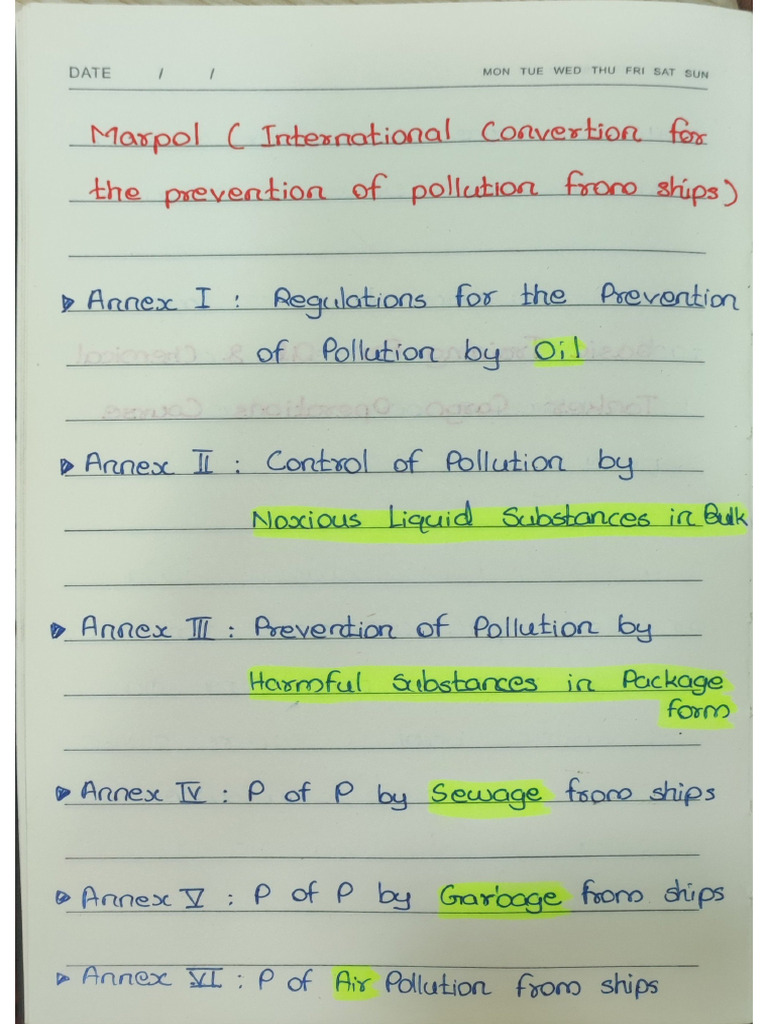 DATE / / MON TUE WED THU FRI SAT SUN
Marpol ( International Convertion for
the prevention of pollution from ships)
Annex I : Regulations for the Prevention
of Pollution by Oil
Annex II : Control of Pollution by
Noxious Liquid Substances in Bulk
Annex III : Prevention of Pollution by
Harmful Substances in Package
form
Annex IV : P of P by Sewage from ships
Annex V : P of P by Garbage from ships
Annex VI : P of Air Pollution from ships